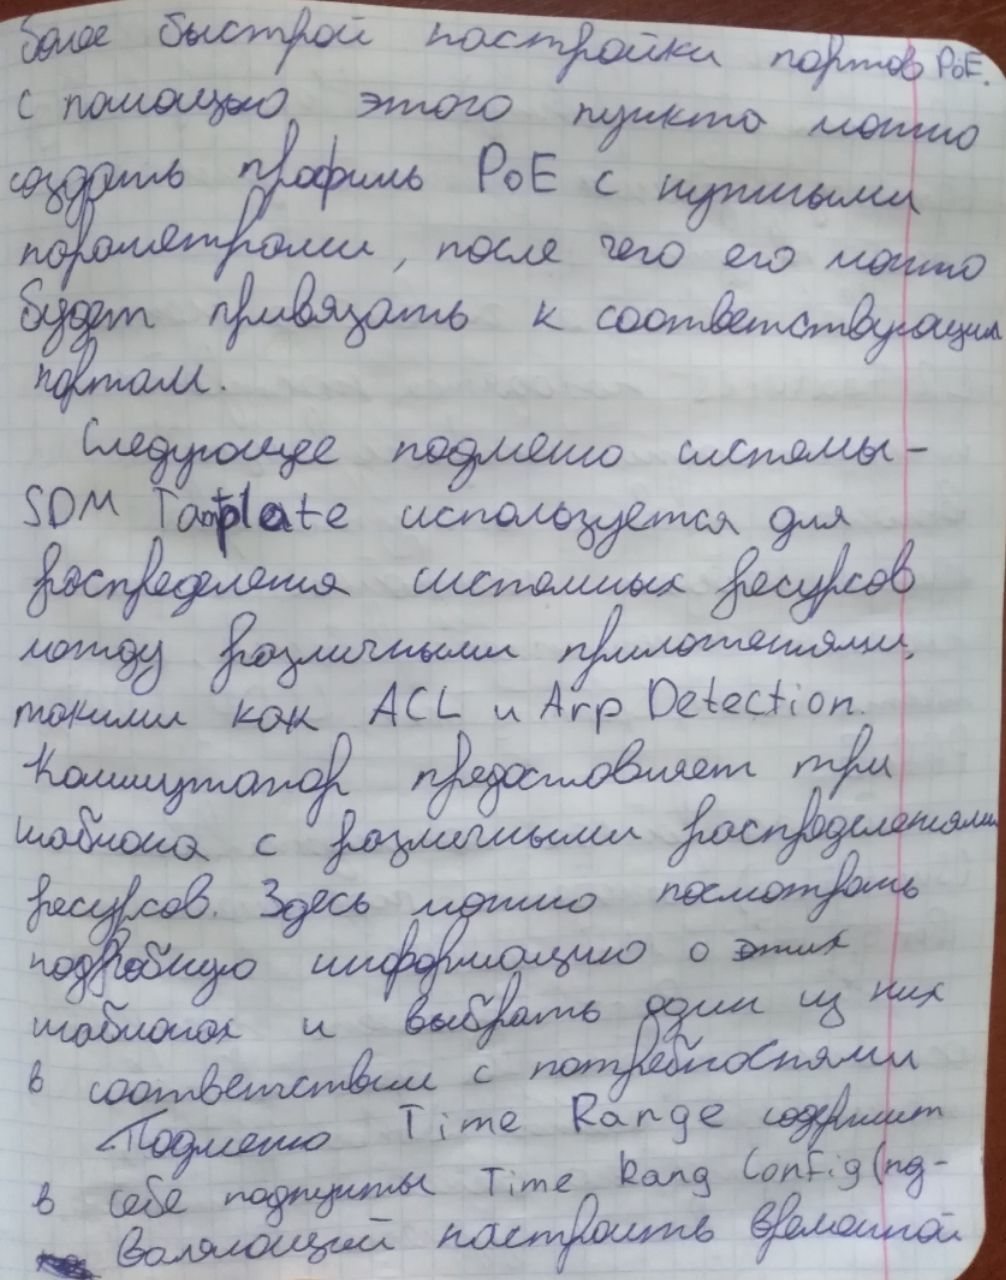 более быстрой настройки портов PoE.
с помощью этого пункта можно
создать профиль PoE с нужными
параметрами, после чего его можно
будет привязать к соответствующим
портам.
Следующее подменю системы -
SDM Tamplate используется для
распределения системных ресурсов
между различными приложениями,
такими как ACL и Arp Detection.
Коммутатор предоставляет три
шаблона с различными распределениями
ресурсов. Здесь можно посмотреть
подробную информацию о этих
шаблонах и выбрать один из них
в соответствии с потребностями
Подменю Time Range содержит
в себе подпункты Time Rang Config (по-
зволяющий настроить временной